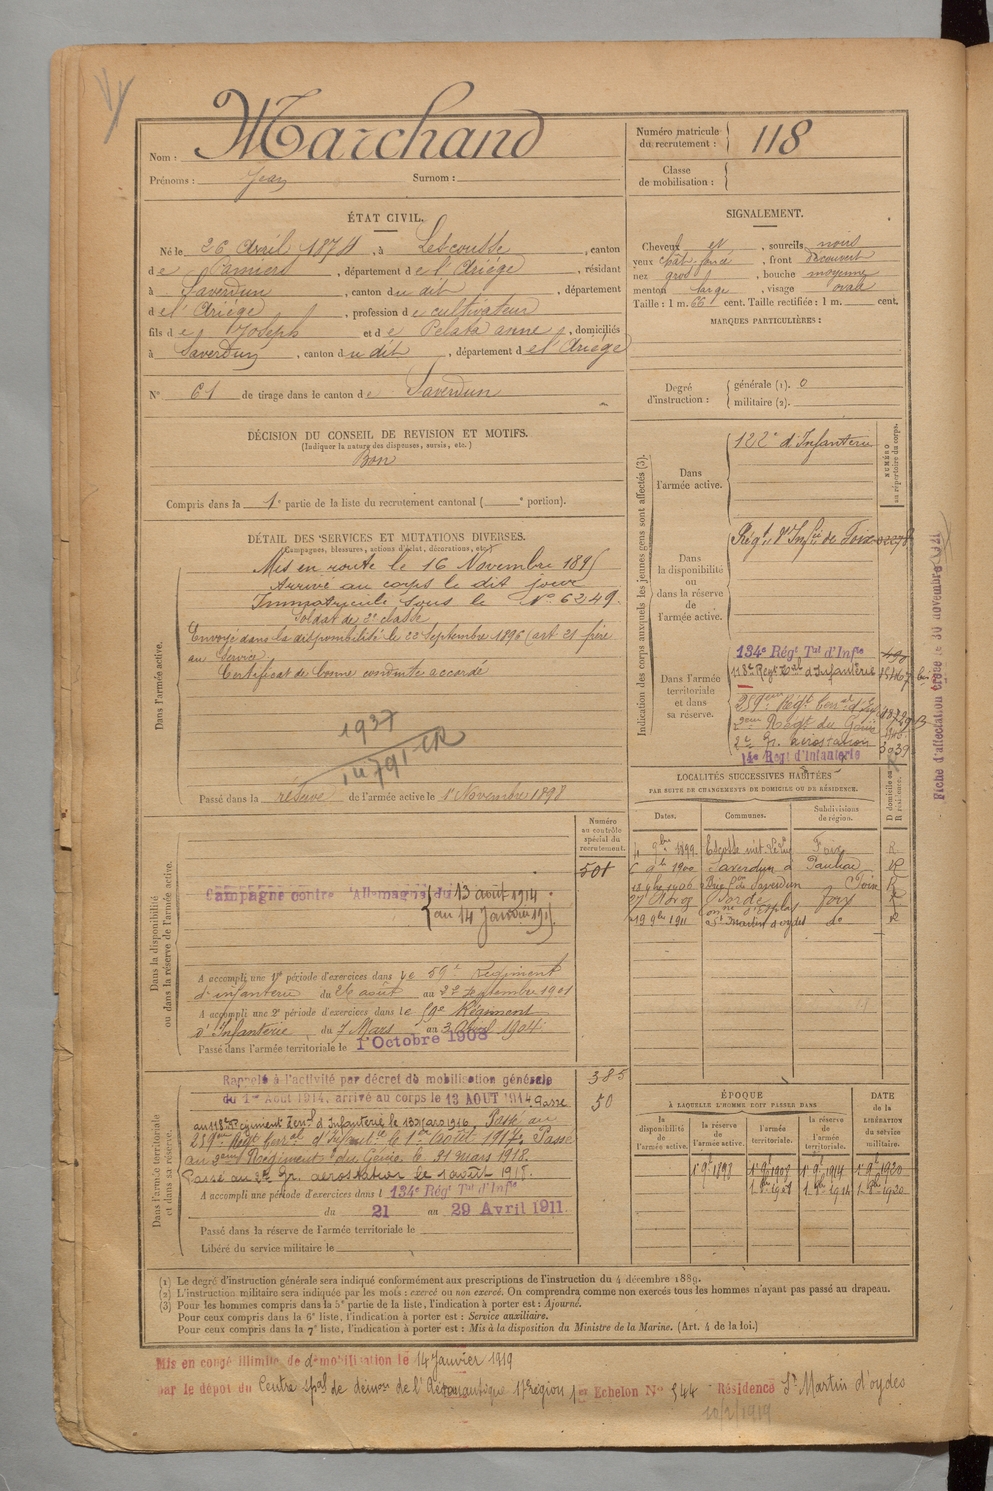 Nom : Marchand
Prénoms : Jean Surnom :
Numéro matricule du recrutement : 118
Classe de mobilisation :
ÉTAT CIVIL.
Né le 26 Avril 1874, à Lescousse, canton
de Pamiers, département de l'Ariége, résidant
à Saverdun, canton du dit, département
de l'Ariége, profession de cultivateur
fils de Joseph et de Pelata anne, domiciliés
à Saverdun, canton du dit, département de l'Ariege
N° 61 de tirage dans le canton de Saverdun
SIGNALEMENT.
Cheveux et, sourcils noirs
yeux chat. foncé, front découvert
nez gros, bouche moyenne
menton large, visage ovale
Taille : 1 m. 661 cent. Taille rectifiée : 1 m. cent.
MARQUES PARTICULIÈRES :
Degré d'instruction : générale (1). 0
militaire (2).
DÉCISION DU CONSEIL DE REVISION ET MOTIFS.
(Indiquer la nature des dispenses, sursis, etc.)
Bon
Compris dans la 1e partie de la liste du recrutement cantonal ( e portion).
DÉTAIL DES SERVICES ET MUTATIONS DIVERSES.
(Campagnes, blessures, actions d'éclat, décorations, etc.)
Dans l'armée active.
Mis en route le 16 Novembre 1895
Arrivé au corps le dit jour
Immatriculé sous le N° 6249.
Soldat de 2e classe
Envoyé dans la disponibilité le 22 Septembre 1896 (art 21 frère
au Service
Certificat de bonne conduite accordé
1937
Passé dans la réserve de l'armée active le 1er Novembre 1898
Indication des corps auxquels les jeunes gens sont affectés (3).
NUMÉRO au répertoire du corps.
Dans l'armée active.
122e d'Infanterie
Dans la disponibilité ou dans la réserve de l'armée active.
Régt d'Infie de Foix
Dans l'armée territoriale et dans sa réserve.
134e Régt Tal d'Infie 490
118e Régt Tal d'Infanterie
259eme Régt Terral d'Inf
2eme Régt du Génie
2e Gr. aérostation 3039
14e Régt d'Infanterie
Fiche d'affectation érasé le 30 novembre
LOCALITÉS SUCCESSIVES HABITÉES
PAR SUITE DE CHANGEMENTS DE DOMICILE OU DE RÉSIDENCE.
Dates. Communes. Subdivisions de région. D domicile ou R résidence.
4 9bre 1899. Escosse Foix R
1900 Saverdun R
1906 Saverdun Foix R
Foix R
19 9bre 1911 St Martin d'oydes do R
Dans la disponibilité ou dans la réserve de l'armée active.
Numéro au contrôle spécial du recrutement.
501
Campagne contre l'Allemagne du 13 août 1914
au 14 Janvier 1919.
A accompli une 1re période d'exercices dans le 59e Régiment
d'infanterie du 26 août au 22 Septembre 1901
A accompli une 2e période d'exercices dans le 59e Régiment
d'Infanterie du 7 Mars au 3 Avril 1904
Passé dans l'armée territoriale le 1er Octobre 1908
Dans l'armée territoriale et dans sa réserve.
385
50
Rappelé à l'activité par décret de mobilisation générale
du 1er Août 1914, arrivé au corps le 13 AOUT 1914 Passé
au 118e Régiment Terral d'Infanterie le 13 Mars 1916, Passé au
259eme Régt Terral d'Infantie le 1er Août 1917. Passé
au 2eme Régiment du Génie le 21 mars 1918.
Passé au 2e Gr. aérostation le 1 août 1918.
A accompli une période d'exercices dans l 134e Régt Tal d'Infie
du 21 au 29 Avril 1911
Passé dans la réserve de l'armée territoriale le
Libéré du service militaire le
ÉPOQUE
À LAQUELLE L'HOMME DOIT PASSER DANS
la disponibilité de l'armée active. la réserve de l'armée active. l'armée territoriale. la réserve de l'armée territoriale.
DATE de la LIBÉRATION du service militaire.
1er 9bre 1898 1er 9bre 1908 1er 9bre 1914 1er 9bre 1920
1908 1914 1920
(1) Le degré d'instruction générale sera indiqué conformément aux prescriptions de l'instruction du 4 décembre 1889.
(2) L'instruction militaire sera indiquée par les mots : exercé ou non exercé. On comprendra comme non exercés tous les hommes n'ayant pas passé au drapeau.
(3) Pour les hommes compris dans la 5e partie de la liste, l'indication à porter est : Ajourné.
Pour ceux compris dans la 6e liste, l'indication à porter est : Service auxiliaire.
Pour ceux compris dans la 7e liste, l'indication à porter est : Mis à la disposition du Ministre de la Marine. (Art. 4 de la loi.)
Mis en congé illimité de démobilisation le 14 Janvier 1919
par le dépôt du Centre spal de démon de l'Aéronautique 17e région 1er Echelon N° 344 Résidence St Martin d'oydes
10/2/1919